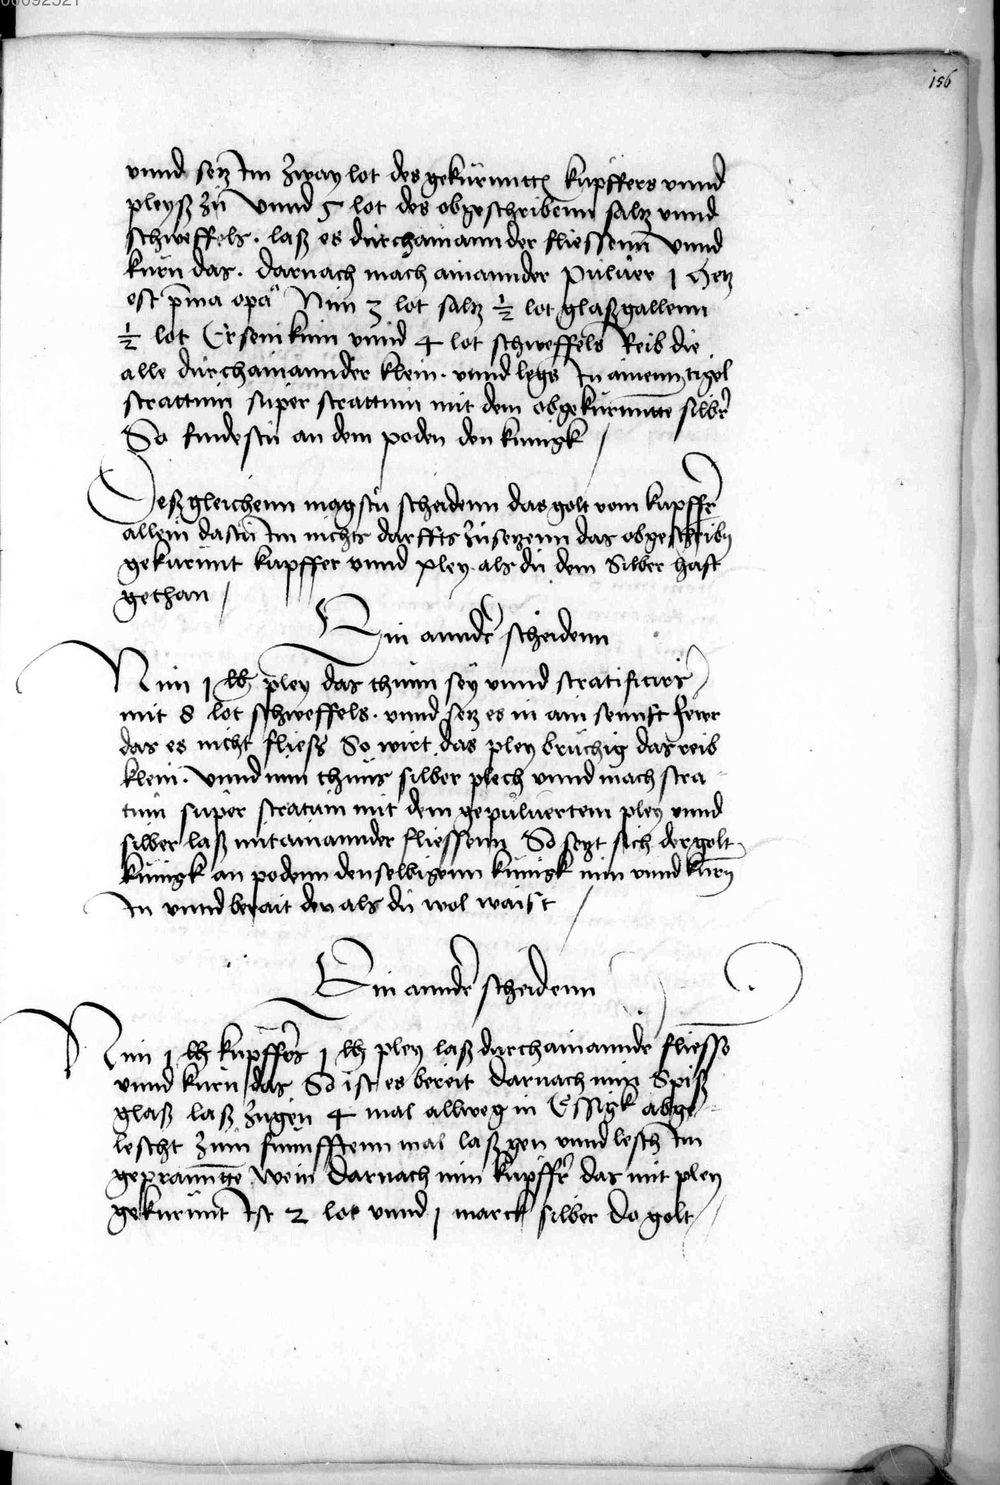 00092521
156
vnnd setz Im zway lot des gekürnntten kupffers vnnd
pleyß zu vnnd 5 lot des obgeschribenn saltz vnnd
schweffels . laß es durchainannder fliessenn vnnd
kürn das . darnach mach ainannder puluer
est pma opa Nim 3 lot saltz ½ lot glaßgallenn
½ lot Ersenikum vnnd 4 lot schweffels Reib die
alle durchainannder klein . vnnd legs In ainenn tigel
strattum super strattum mit dem obgekürnntte silber
So findestu an dem poden den kunigk /
Deßgleichenn magstu scheidenn das golt vom kupffer
allein dastu Im nichts darffts zusetzenn das obgeschriben
gekürnnt kupffer vnnd pley als du dem Silber hast
gethan /
Ein annder scheidenn
Nim 1 lb pley das thünn sey vnnd stratificirs
mit 8 lot schweffels . vnnd setz es in ain sennft fewr
das es nicht fließ So wirt das pley bruchig das reib
klein . vnnd nim thüns silber plech vnnd mach stra¬
tum super stratum mit dem gepuluertem pley vnnd
silber laß mitainannder fliessenn So setzt sich der golt
kunigk an podenn denselbigenn kunigk nim vnnd kürn
In vnnd berait den als du wol waist /
Ein annder scheidenn
Nim 1 lb kupffers 1 lb pley laß durchainannder fliesse
vnnd kürn das So ist es bereit darnach nim Spiß
glaß laß zugen 4 mal allweg in Essigk abge¬
lescht zum funnfftenn mal laß gen vnnd lesch Im
gepranntte wein darnach nim kupffer das mit pley
gekürnnt Ist 2 lot vnnd 1 marck silber do golt